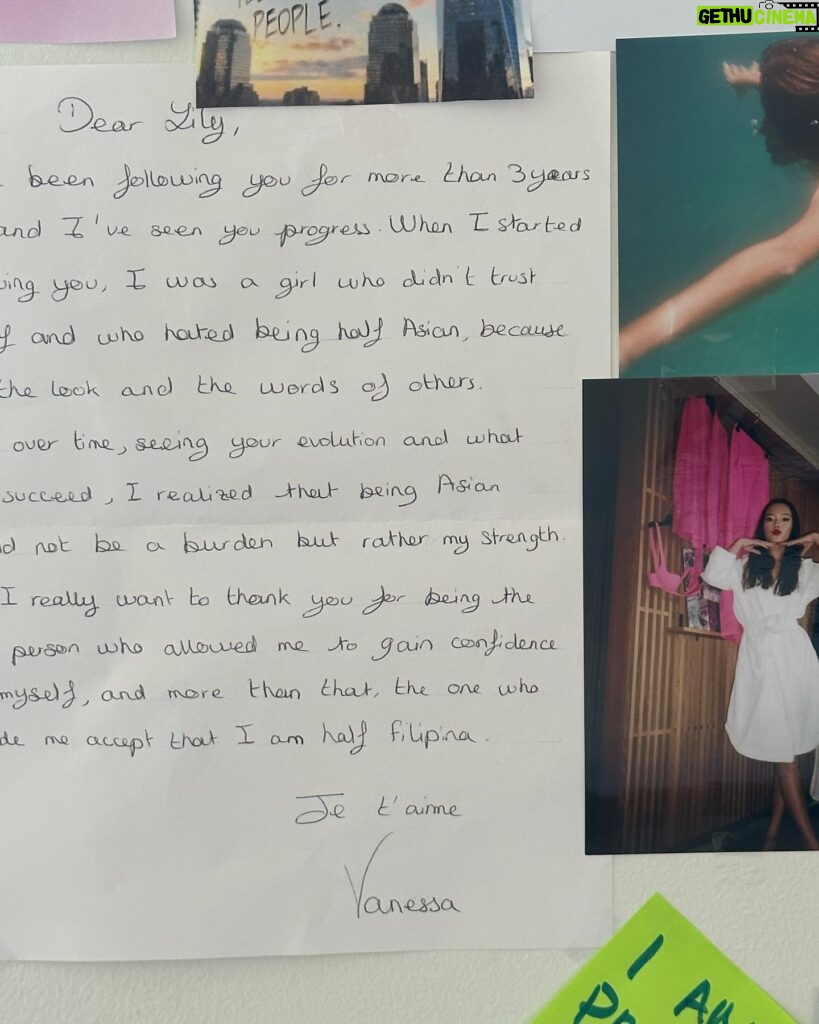 GETHUCINEMA
PEOPLE.
Dear Lily,
been following you for more than 3 years
and I've seen you progress. When I started
ing you, I was a girl who didn't trust
f and who hated being half Asian, because
the look and the words of others.
over time, seeing your evolution and what
succeed, I realized that being Asian
d not be a burden but rather my strength.
I really want to thank you for being the
person who allowed me to gain confidence
myself, and more than that, the one who
de me accept that I am half filipina.
Je t'aime
Vanessa
I AM